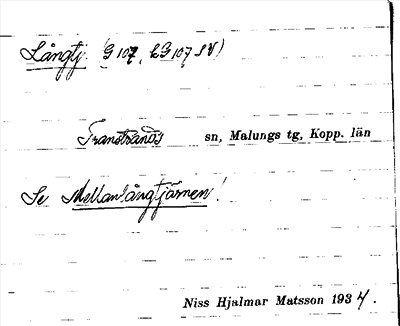 Långtj. (G 107, LG 107 SV)
Transtrands sn, Malungs tg, Kopp. län
Se Mellanlångtjärnen!
Niss Hjalmar Matsson 1934.